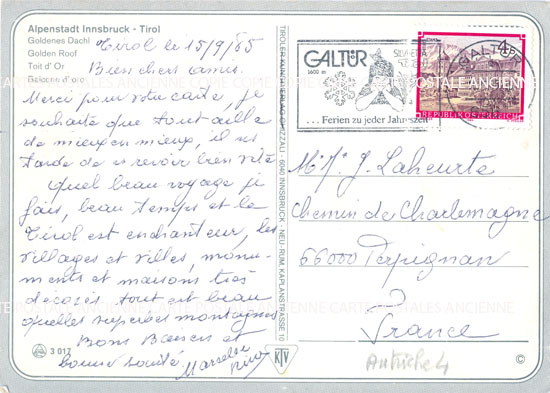 Alpenstadt Innsbruck - Tirol
Goldenes Dachl
Golden Roof
Toit d' Or
Balcone d'oro
Tirol le 15/9/85
Bien chers amis.
Merci pour votre carte, je
souhaite que tout aille
de mieux en mieux, il me
tarde de revoir bien vite
Quel beau voyage je
fais, beau temps et le
Tirol est enchanteur, les
villages et villes, monu-
ments et maisons très
décorés tout est beau
quelles superbes montagnes
Bons Baisers et
bonne santé.
Marcelle
3 017
TIROLER KUNSTVERLAG CHIZZALI - 6040 INNSBRUCK - NEU-RUM, KAPLANSTRASSE 10
KTV
GALTÜR
1600 m
SILVRETTA
... Ferien zu jeder Jahreszeit
GALTÜR
4
REPUBLIK ÖSTERREICH
J. Laheurte
Chemin de Charlemagne
66000 Perpignan
France
Autriche 4
©
CARTES POSTALES ANCIENNES